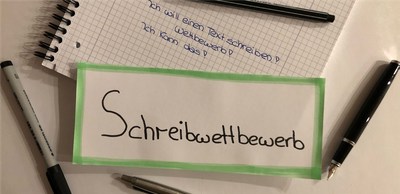 Ich will einen Text schreiben!
Wettbewerb?
Ich kann das!
Schreibwettbewerb